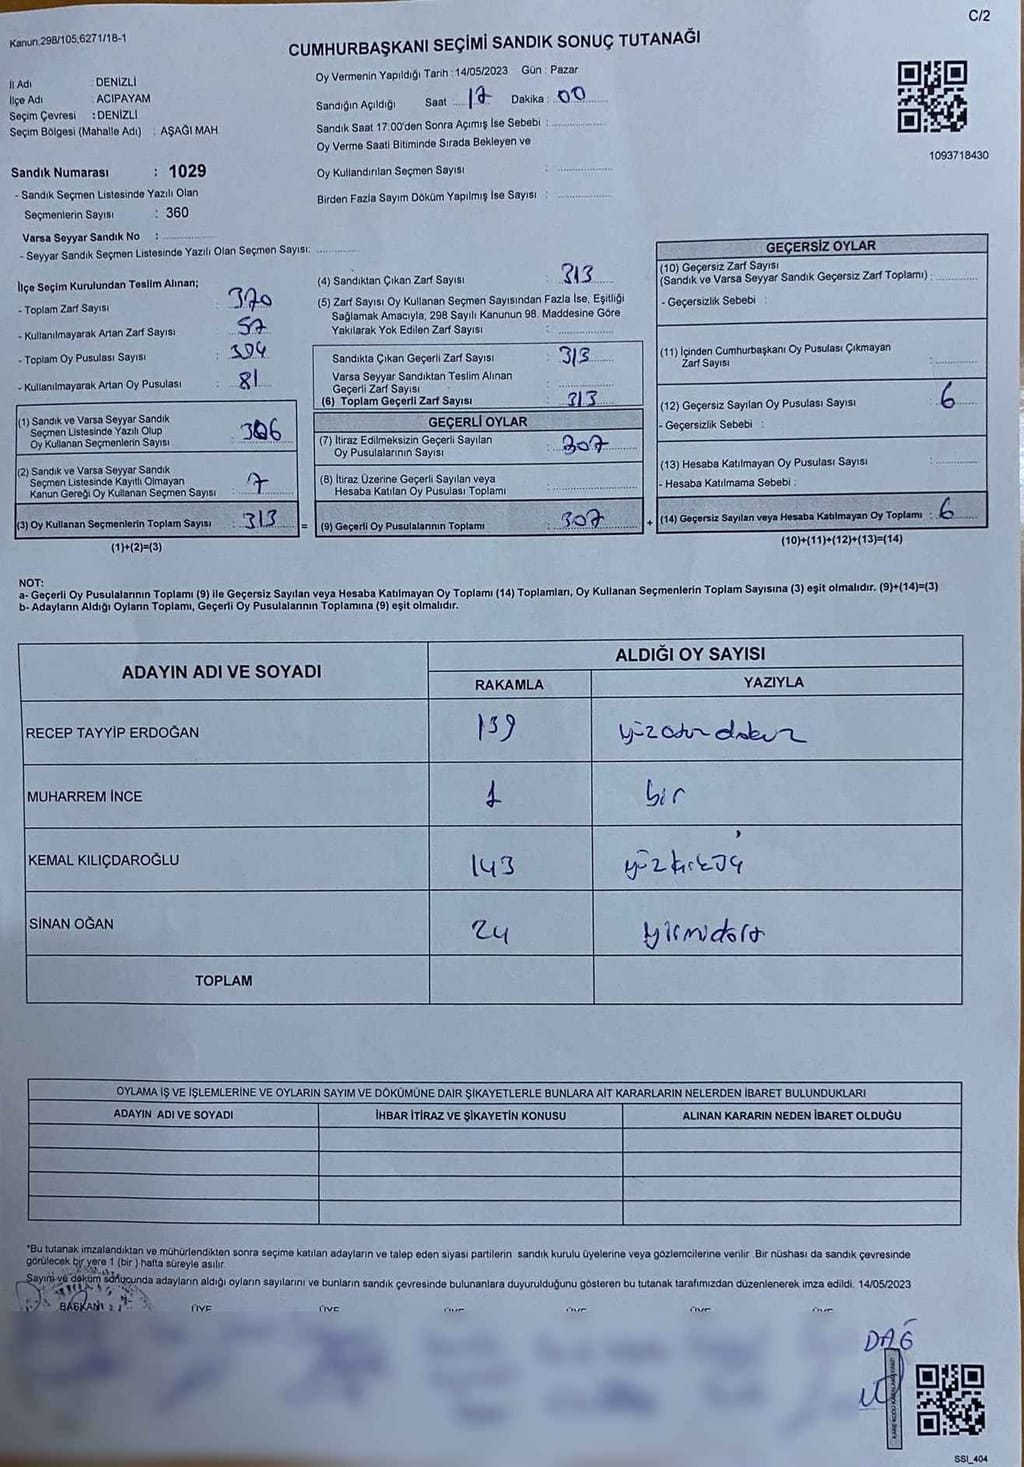 C/2
Kanun:298/105,6271/18-1
CUMHURBAŞKANI SEÇİMİ SANDIK SONUÇ TUTANAĞI
İl Adı : DENİZLİ
İlçe Adı : ACIPAYAM
Seçim Çevresi : DENİZLİ
Seçim Bölgesi (Mahalle Adı) : AŞAĞI MAH.
Oy Vermenin Yapıldığı Tarih :14/05/2023 Gün : Pazar
Sandığın Açıldığı Saat : 17 Dakika : 00
Sandık Saat 17:00'den Sonra Açımış İse Sebebi :
Oy Verme Saati Bitiminde Sırada Bekleyen ve
Oy Kullandırılan Seçmen Sayısı :
Birden Fazla Sayım Döküm Yapılmış İse Sayısı :
1093718430
Sandık Numarası : 1029
- Sandık Seçmen Listesinde Yazılı Olan
Seçmenlerin Sayısı : 360
Varsa Seyyar Sandık No :
- Seyyar Sandık Seçmen Listesinde Yazılı Olan Seçmen Sayısı:
İlçe Seçim Kurulundan Teslim Alınan;
- Toplam Zarf Sayısı : 370
- Kullanılmayarak Artan Zarf Sayısı : 57
- Toplam Oy Pusulası Sayısı : 394
- Kullanılmayarak Artan Oy Pusulası : 81
(1) Sandık ve Varsa Seyyar Sandık
Seçmen Listesinde Yazılı Olup
Oy Kullanan Seçmenlerin Sayısı : 306
(2) Sandık ve Varsa Seyyar Sandık
Seçmen Listesinde Kayıtlı Olmayan
Kanun Gereği Oy Kullanan Seçmen Sayısı : 7
(3) Oy Kullanan Seçmenlerin Toplam Sayısı : 313
(1)+(2)=(3)
=
(4) Sandıktan Çıkan Zarf Sayısı : 313
(5) Zarf Sayısı Oy Kullanan Seçmen Sayısından Fazla İse, Eşitliği
Sağlamak Amacıyla, 298 Sayılı Kanunun 98. Maddesine Göre
Yakılarak Yok Edilen Zarf Sayısı :
Sandıkta Çıkan Geçerli Zarf Sayısı : 313
Varsa Seyyar Sandıktan Teslim Alınan
Geçerli Zarf Sayısı :
(6) Toplam Geçerli Zarf Sayısı : 313
GEÇERLİ OYLAR
(7) İtiraz Edilmeksizin Geçerli Sayılan
Oy Pusulalarının Sayısı : 307
(8) İtiraz Üzerine Geçerli Sayılan veya
Hesaba Katılan Oy Pusulası Toplamı :
(9) Geçerli Oy Pusulalarının Toplamı : 307
+
GEÇERSİZ OYLAR
(10) Geçersiz Zarf Sayısı
(Sandık ve Varsa Seyyar Sandık Geçersiz Zarf Toplamı) :
- Geçersizlik Sebebi :
(11) İçinden Cumhurbaşkanı Oy Pusulası Çıkmayan
Zarf Sayısı :
(12) Geçersiz Sayılan Oy Pusulası Sayısı : 6
- Geçersizlik Sebebi :
(13) Hesaba Katılmayan Oy Pusulası Sayısı :
- Hesaba Katılmama Sebebi :
(14) Geçersiz Sayılan veya Hesaba Katılmayan Oy Toplamı : 6
(10)+(11)+(12)+(13)=(14)
NOT:
a- Geçerli Oy Pusulalarının Toplamı (9) ile Geçersiz Sayılan veya Hesaba Katılmayan Oy Toplamı (14) Toplamları, Oy Kullanan Seçmenlerin Toplam Sayısına (3) eşit olmalıdır. (9)+(14)=(3)
b- Adayların Aldığı Oyların Toplamı, Geçerli Oy Pusulalarının Toplamına (9) eşit olmalıdır.
ADAYIN ADI VE SOYADI
ALDIĞI OY SAYISI
RAKAMLA YAZIYLA
RECEP TAYYİP ERDOĞAN 139 yüzotuzdokuz
MUHARREM İNCE 1 bir
KEMAL KILIÇDAROĞLU 143 yüzkırküç
SİNAN OĞAN 24 yirmidört
TOPLAM
OYLAMA İŞ VE İŞLEMLERİNE VE OYLARIN SAYIM VE DÖKÜMÜNE DAİR ŞİKAYETLERLE BUNLARA AİT KARARLARIN NELERDEN İBARET BULUNDUKLARI
ADAYIN ADI VE SOYADI İHBAR İTİRAZ VE ŞİKAYETİN KONUSU ALINAN KARARIN NEDEN İBARET OLDUĞU
*Bu tutanak imzalandıktan ve mühürlendikten sonra seçime katılan adayların ve talep eden siyasi partilerin sandık kurulu üyelerine veya gözlemcilerine verilir .Bir nüshası da sandık çevresinde
görülecek bir yere 1 (bir ) hafta süreyle asılır.
Sayım ve döküm sonucunda adayların aldığı oyların sayılarını ve bunların sandık çevresinde bulunanlara duyurulduğunu gösteren bu tutanak tarafımızdan düzenlenerek imza edildi. 14/05/2023
BAŞKAN ÜYE ÜYE ÜYE ÜYE ÜYE ÜYE
DAĞ
SSI_404